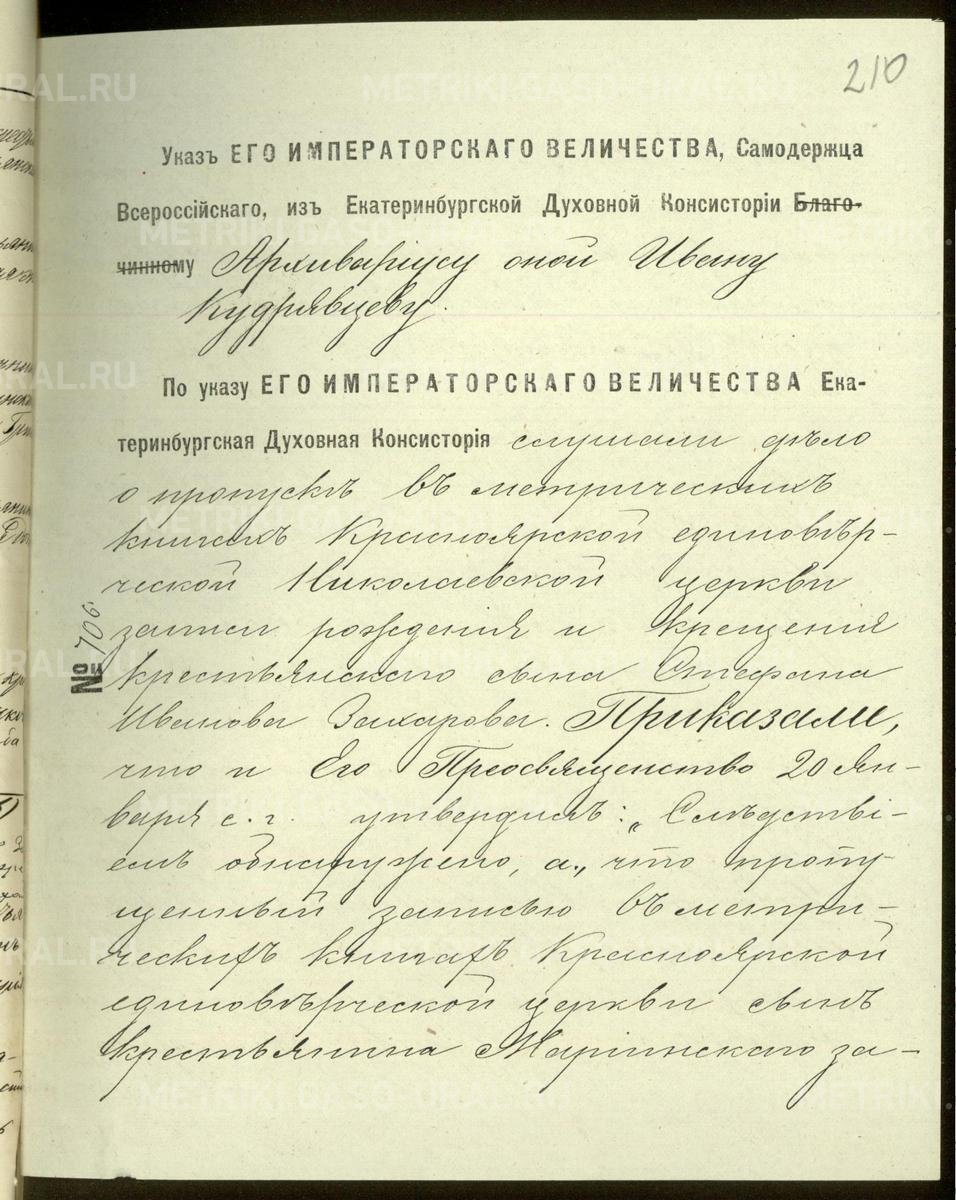 210
Указъ ЕГО ИМПЕРАТОРСКАГО ВЕЛИЧЕСТВА, Самодержца
Всероссійскаго, изъ Екатеринбургской Духовной Консисторіи Благо-
чинному Архиваріусу оной Ивану
Кудрявцеву.
По указу ЕГО ИМПЕРАТОРСКАГО ВЕЛИЧЕСТВА Ека-
теринбургская Духовная Консисторія слушали дѣло
о пропускѣ въ метрическихъ
книгахъ Красноярской единовѣр-
ческой Николаевской церкви
записи рожденія и крещенія
№ 706
крестьянскаго сына Стефана
Иванова Захарова. Приказали,
что и Его Преосвященство 20 Ян-
варя с. г. утвердилъ: „Слѣдстві-
емъ обнаружено, а., что пропу-
щенный записью въ метри-
ческихъ книгахъ Красноярской
единовѣрческой церкви сынъ
крестьянина Маріинскаго за-
METRIKI.GASO-URAL.RU